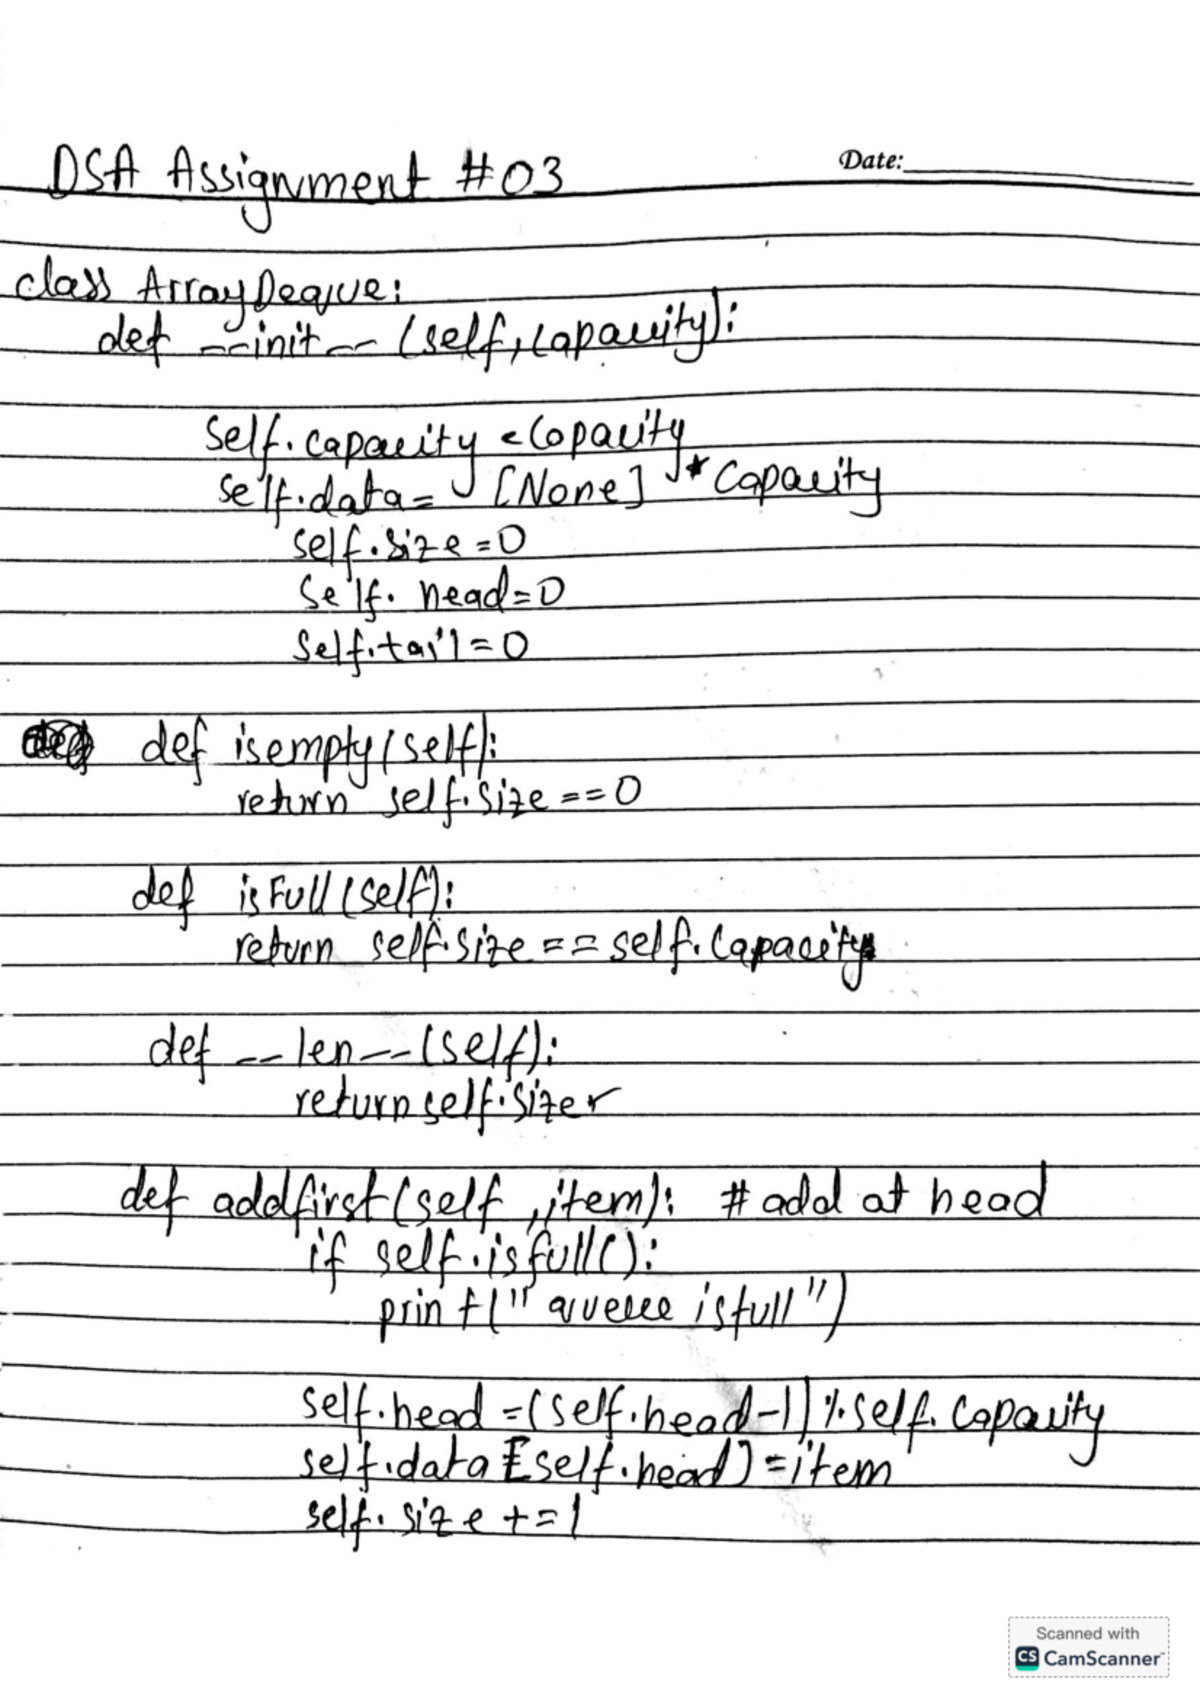 DSA Assignment #03
Date:
class ArrayDeque:
def __init__(self, capacity):
self.capacity = capacity
self.data = [None] * capacity
self.size = 0
self.head = 0
self.tail = 0
def isempty(self):
return self.size == 0
def isFull(self):
return self.size == self.capacity
def __len__(self):
return self.size
def addfirst(self, item): # add at head
if self.isfull():
print("queue is full")
self.head = (self.head-1) % self.capacity
self.data[self.head] = item
self.size += 1
Scanned with
CS CamScanner